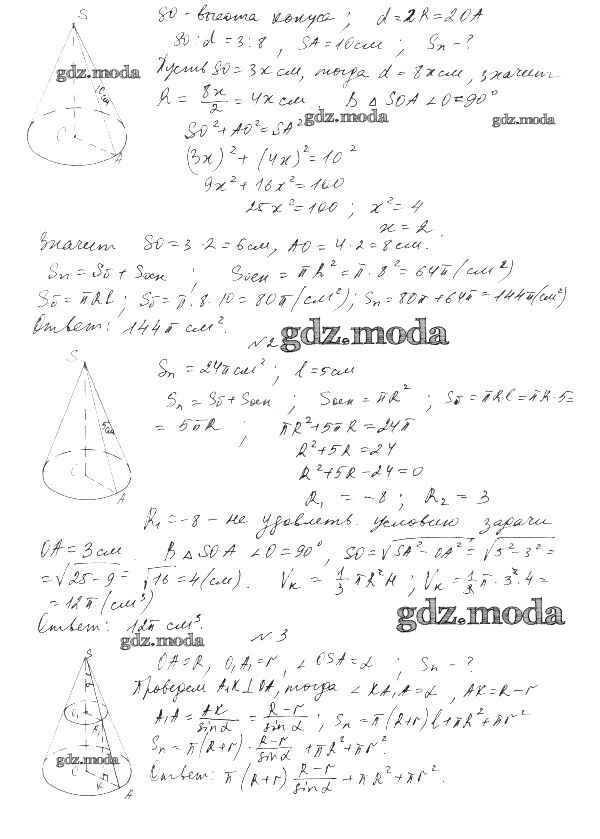 SO - высота конуса; d = 2R = 2OA
SO : d = 3:8, SA = 10 см; Sп - ?
Пусть SO = 3x см, тогда d = 8x см, значит
R = 8x/2 = 4x см В △ SOA ∠O = 90°
SO² + AO² = SA²
(3x)² + (4x)² = 10²
9x² + 16x² = 100
25x² = 100; x² = 4
x = 2.
Значит SO = 3 · 2 = 6 см, AO = 4 · 2 = 8 см.
Sп = Sб + Sосн; Sосн = πR² = π · 8² = 64π (см²)
Sб = πRl; Sб = π · 8 · 10 = 80π (см²); Sп = 80π + 64π = 144π (см²)
Ответ: 144π см².
№2
Sп = 24π см²; l = 5 см
Sп = Sб + Sосн; Sосн = πR²; Sб = πRl = πR · 5 =
= 5πR; πR² + 5πR = 24π
R² + 5R = 24
R² + 5R - 24 = 0
R₁ = -8; R₂ = 3
R₁ = -8 - не удовлетв. условию задачи
OA = 3 см. В △ SOA ∠O = 90°, SO = √SA² - OA² = √5² - 3² =
= √25 - 9 = √16 = 4 (см). Vк = 1/3 πR²H; Vк = 1/3 π · 3² · 4 =
= 12π (см³)
Ответ: 12π см³.
№3
OA = R, O₁A₁ = r, ∠OSA = α; Sп - ?
Проведем A₁K ⊥ OA, тогда ∠KA₁A = α, AK = R - r
A₁A = AK/sin α = R - r/sin α; Sп = π(R + r)l + πR² + πr²
Sп = π(R + r) · R - r/sin α + πR² + πr².
Ответ: π(R + r) R - r/sin α + πR² + πr².
S
10 см
C
A
S
5 см
C
A
S
α
O₁
A₁
K
A
gdz.moda
gdz.moda
gdz.moda
gdz.moda
gdz.moda
gdz.moda
gdz.moda